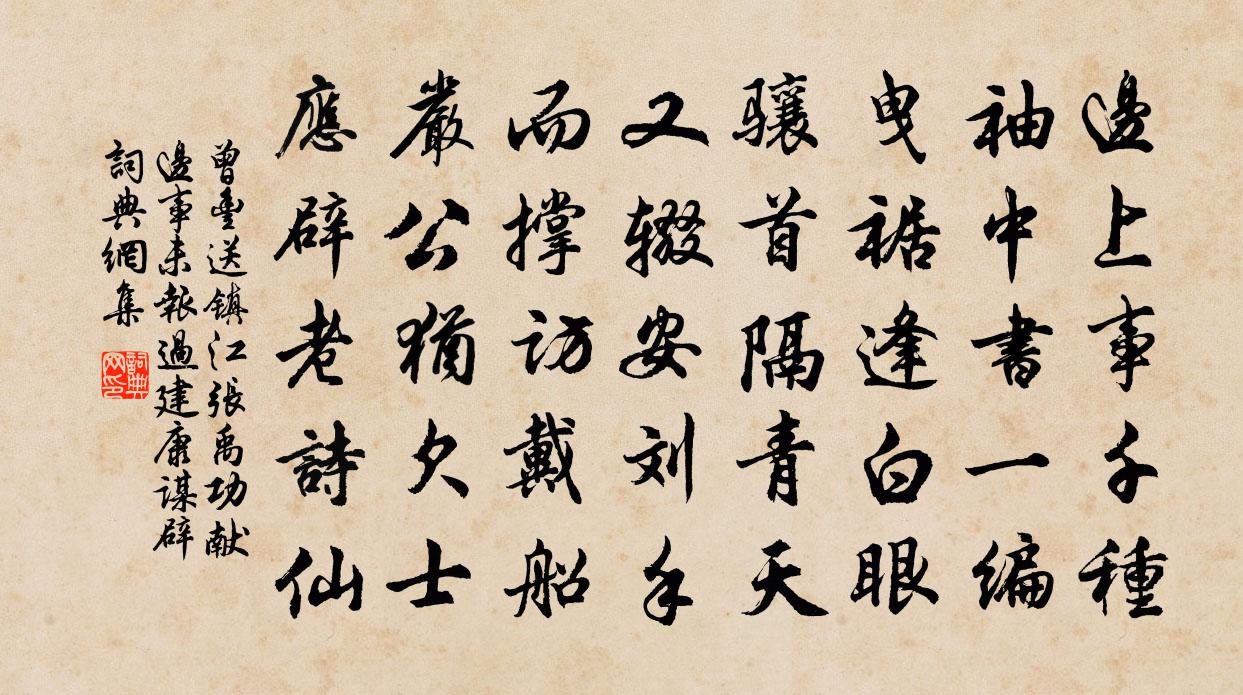 邊上事千種
袖中書一编
曳裾逢白眼
骧首隔青天
又辍安刘手
而撑訪戴船
嚴公猶欠士
應辟老詩仙
曾豊送镇江張禹功献
邊事未報過建康謀辟
詞典網集
詞典网印